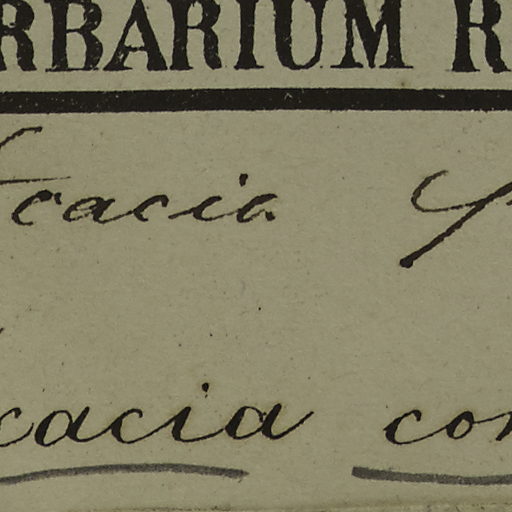 RBARIUM R
Acacia
cacia con